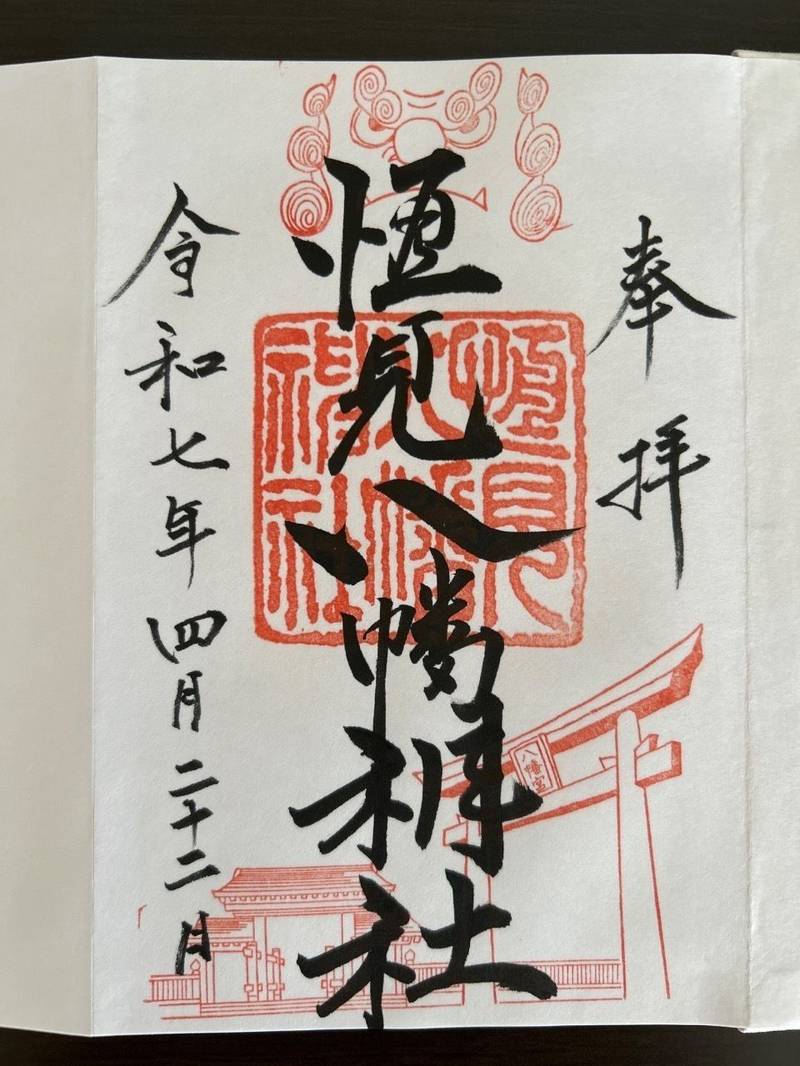 奉拝
恒見八幡神社
恒見八幡神社
八幡宮
令和七年四月二十二日